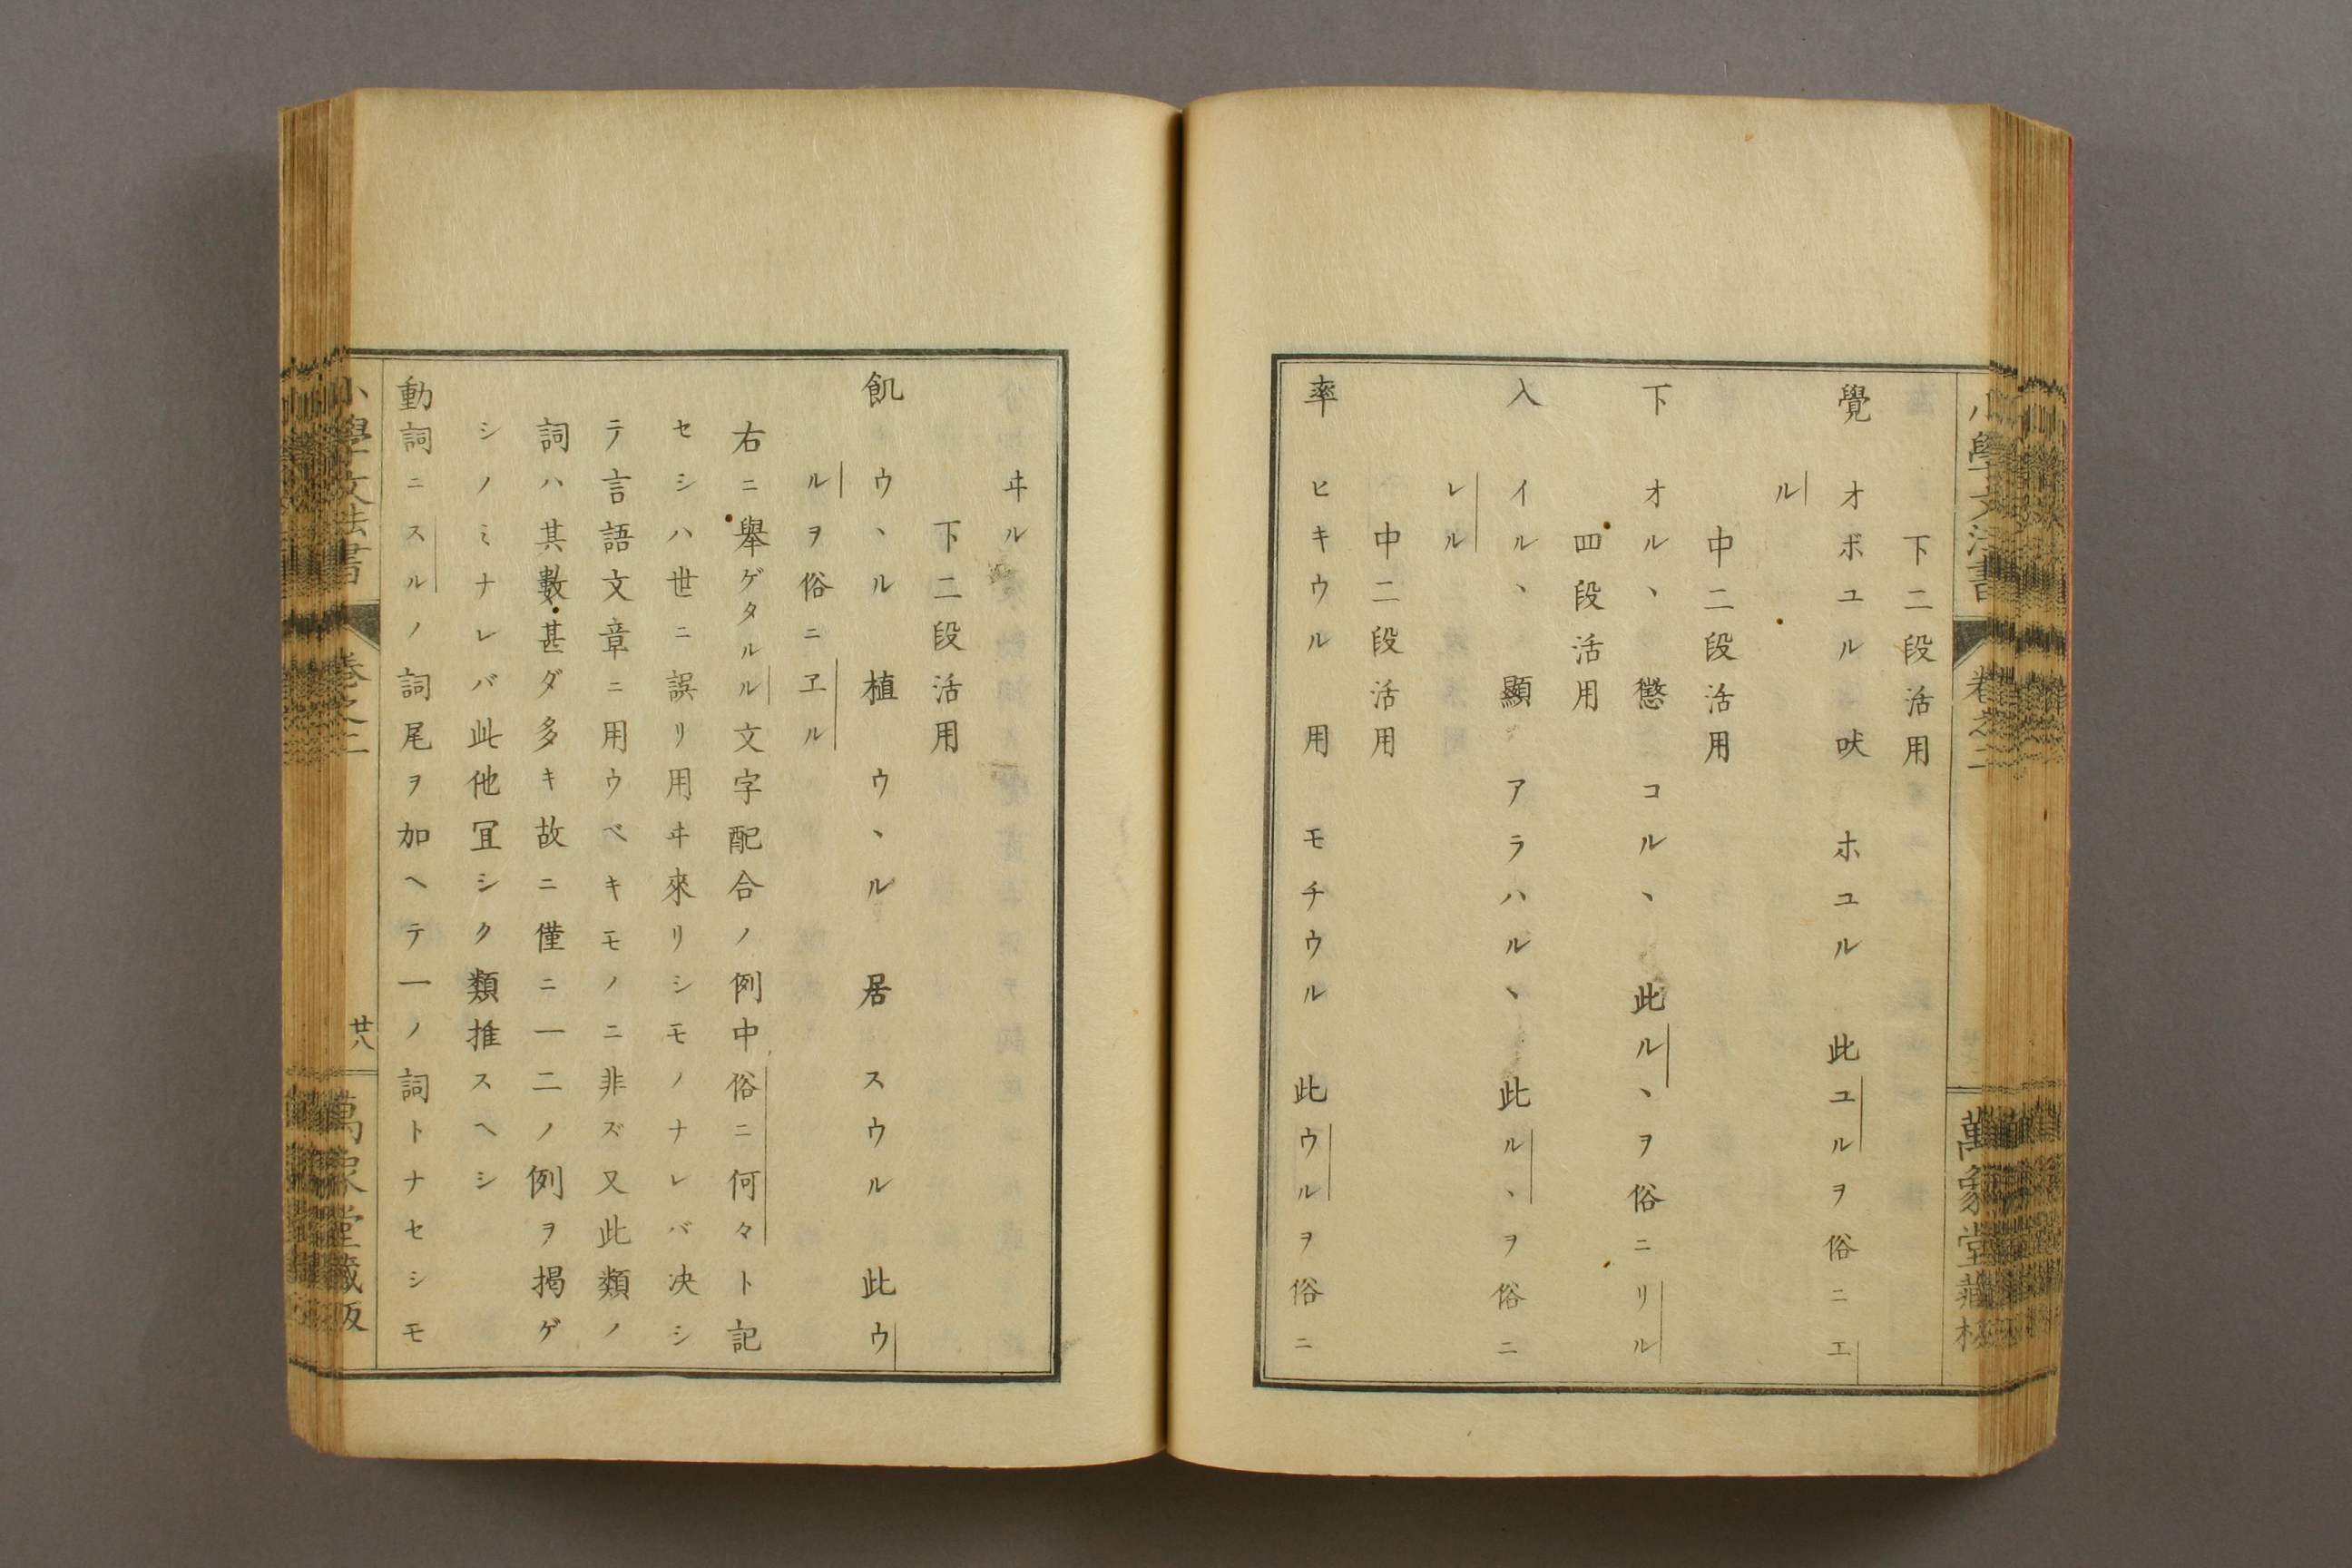 小學文法書 卷之二
萬象堂藏板
下二段活用
覺 オボユル 吠 ホユル 此ユルヲ俗ニエ
ル
中二段活用
下 オル、 懲 コル、 此ル、ヲ俗ニリル
四段活用
入 イル、 顯 アラハル、 此ル、ヲ俗ニ
レル
中二段活用
率 ヒキウル 用 モチウル 此ウルヲ俗ニ
ヰル
下二段活用
飢 ウ、ル 植 ウ、ル 居 スウル 此ウ
ルヲ俗ニヱル
右ニ擧ゲタルル文字配合ノ例中俗ニ何々ト記
セシハ世ニ誤リ用ヰ來リシモノナレバ决シ
テ言語文章ニ用ウベキモノニ非ズ又此類ノ
詞ハ其數甚ダ多キ故ニ僅ニ一二ノ例ヲ掲ゲ
シノミナレバ此他冝シク類推スヘシ
動詞ニスルノ詞尾ヲ加ヘテ一ノ詞トナセシモ
小學文法書 卷之二 廿八
萬象堂藏版